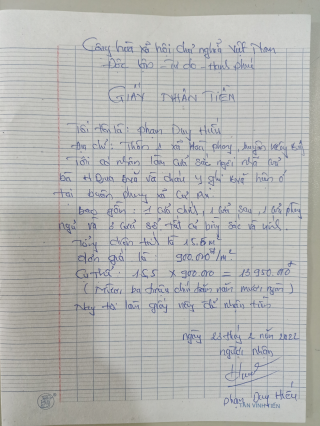 Cộng hòa xã hội chủ nghĩa Việt Nam
Độc lập - Tự do - Hạnh phúc
GIẤY NHẬN TIỀN
Tôi tên là: phan Duy Hiếu
Địa chỉ: Thôn 1 xã Hòa phong, huyện
Tôi có nhận làm cửa sắc ngôi nhà của
bà H và cháu y ghi hiện ở
tại buôn xã Cư
Bao gồm: 1 cửa chính, 1 cửa sau, 1 cửa phòng
ngủ và 2 cửa sổ tất cả bằng sắc và kính.
Tổng diện tích là 15.5m²
đơn giá là 900.000đ/m²
Cụ thể: 15.5 x 900.000 = 13.950.000đ
(Mười ba triệu chín trăm năm mươi ngàn)
Nay tôi làm giấy này đã nhận tiền
ngày 23 tháng 2 năm 2022
người nhận
phan Duy Hiếu